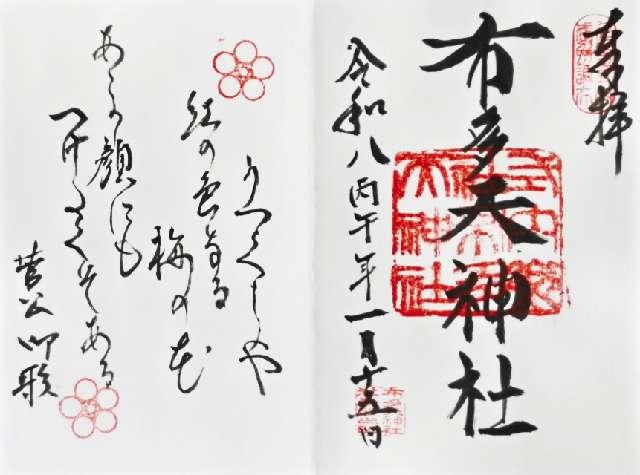 奉拝
布多天神社
令和八丙午年一月十五日
うつくしや
紅の色なる
梅の花
あこが顔にも
つけたくぞある
菅公御歌